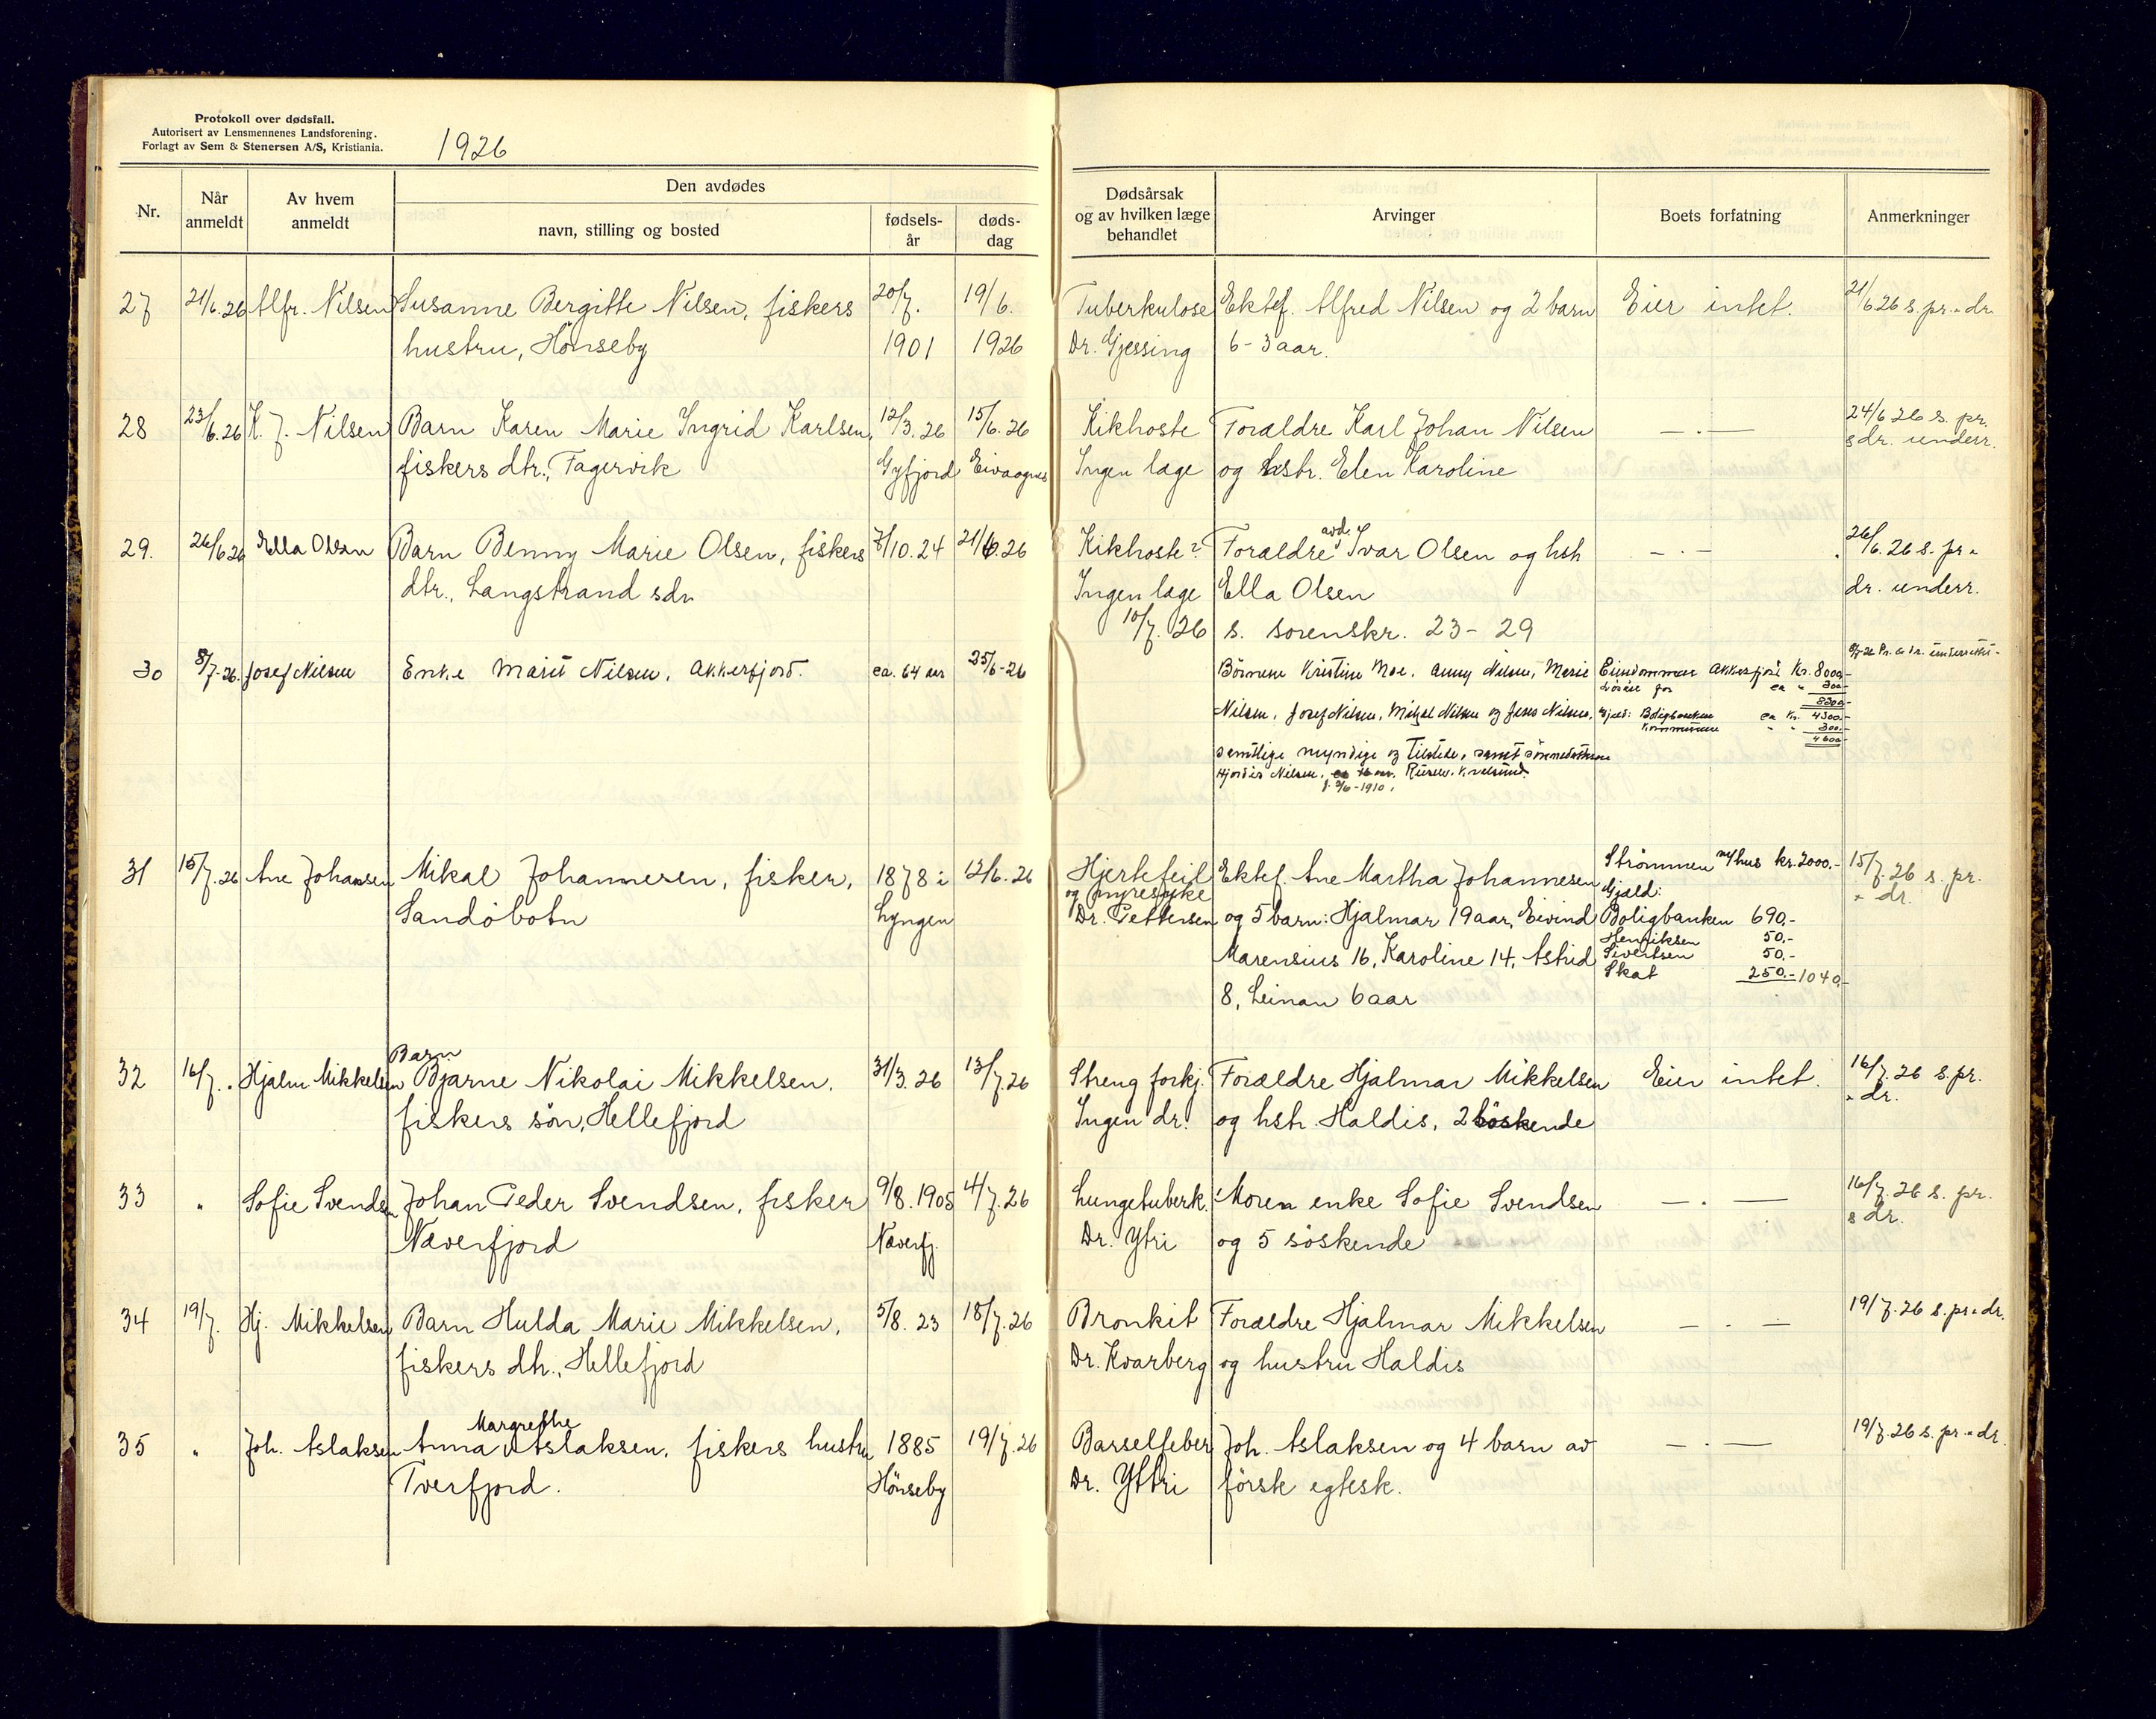 Protokoll over dødsfall.
Autorisert av Lensmennenes Landsforening.
Forlagt av Sem & Stenersen A/S, Kristiania.
1926
Nr.
Når anmeldt
Av hvem anmeldt
Den avdødes
navn, stilling og bosted
fødsels-år
døds-dag
Dødsårsak og av hvilken læge behandlet
Arvinger
Boets forfatning
Anmerkninger
27 21/6.26 Alfr. Nilsen Susanne Bergitte Nilsen, fiskers 20/7. 19/6. Tuberkulose Ektef. Alfred Nilsen og 2 barn Eier intet. 21/6 26 s. pr. " dr.
hustru, Hönseby 1901 1926 Dr. Gjessing 6 - 3 aar.
28 23/6.26 K. J. Nilsen Barn Karen Marie Ingrid Karlsen, 12/3.26 15/6.26 Kikhoste Foraldre Karl Johan Nilsen — . — 24/6 26 s. pr.
fiskers dtr., Fagervik Gyfjord Ingen læge og hstr. Elen Karoline & dr. underr.
29. 26/6 26 Ella Olsen Barn Benny Marie Olsen, fiskers 7/10.24 21/6.26 Kikhoste? Foraldre avd. Ivar Olsen og hstr — . — 26/6.26 s. pr "
dtr., Langstrand sdr. Ingen læge Ella Olsen dr. underr.
10/7.26 s. sorenskr. 23 - 29
30 8/7-26. Josef Nilsen Enke Marit Nilsen, Akkerfjord. ca. 64 aar 25/6-26 Börnene Kristine Moe, Anny Nilsen, Marie Eiendommen Akkerfjord Kr. 8000,-
Lösöre for ca " 300,-
8300,-
Nilsen, Josef Nilsen, Mikal Nilsen og Jens Nilsen, Gjæld: Boligbanken ca Kr. 4300.-
Kommunen " " 300.-
4600,-
samtlige myndige og tilstede, samt sönnedatteren
Hjördis Nilsen, Kvalsund.
f. 9/6-1910.
31 15/7.26 Ane Johansen Mikal Johannesen, fisker, 1878 i 12/6.26 Hjertefeil Ektef. Ane Martha Johannesen Strömmen m/hus kr. 2000.- 15/7.26 s. pr.
og nyresyke Gjæld: " dr.
Sandöbotn Lyngen Dr. Pettersen og 5 barn: Hjalmar 19 aar, Eivind Boligbanken 690,-
Henriksen 50,-
Marensius 16, Karoline 14, Astrid Sivertsen 50,-
Skat 250.- 1040,-
8, Leinan 6 aar
32 16/7. " Hjalm. Mikkelsen Barn Bjarne Nikolai Mikkelsen, 31/3.26 13/7.26 Streng forkj. Foraldre Hjalmar Mikkelsen Eier intet. 16/7.26 s. pr.
fiskers sön, Hellefjord Ingen dr. og hstr. Haldis, 2 söskende " dr.
33 " Sofie Svendsen Johan Peder Svendsen, fisker 9/8.1905 4/7.26 Lungetuberk. Moren enke Sofie Svendsen — . — 16/7.26 s. pr.
Næverfjord Næverfj. Dr. Ytri og 5 söskende & dr.
34 19/7. Hj. Mikkelsen Barn Hulda Marie Mikkelsen, 5/8.23 18/7.26 Bronkit Foraldre Hjalmar Mikkelsen — . — 19/7.26 s. pr " dr.
fiskers dtr., Hellefjord Dr. Kvarberg og hustru Haldis
35 " Joh. Aslaksen Anna Margrethe Aslaksen, fiskers hustru 1885 19/7.26 Barselfeber Joh. Aslaksen og 4 barn av — . — 19/7.26 s. pr " dr.
Tverfjord. Hönseby Dr. Yttri försk egtesk.